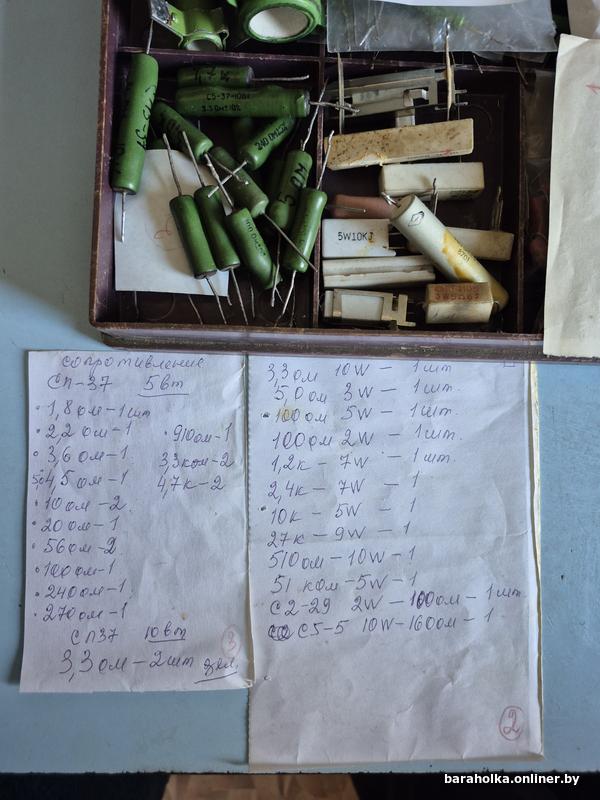 С5-37-10Вт
3.3 ОМ±10%
240 ОМ±5%
5W10KJ
сопротивление
СП-37 5вт
· 1,8 ом - 1шт
· 2,2 ом - 1
· 3,6 ом - 1
4,5 ом - 1
· 10 ом - 2
· 20 ом - 1
· 56 ом - 2
· 100 ом - 1
· 240 ом - 1
· 270 ом - 1
· 910 ом - 1
3,3 ком - 2
4,7к - 2
СП37 10вт
3,3 ом - 2шт зел.
3
3,3 ом 10W - 1шт
5,0 ом 3W - 1шт.
· 100 ом 5W - 1шт.
100 ом 2W - 1шт.
1,2к - 7W - 1шт.
2,4к - 7W - 1
· 10к - 5W - 1
27к - 9W - 1
510 ом - 10W - 1
51 ком - 5W - 1
С2-29 2W - 100 ом - 1шт
С5-5 10W - 160 ом - 1
2
baraholka.onliner.by